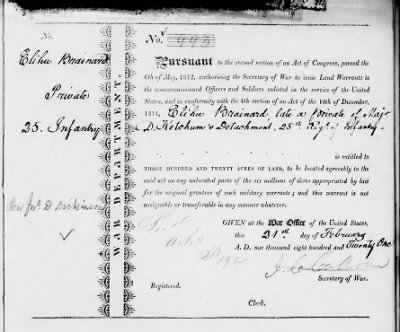 No. 993
Elihu Brainard
Private
25. Infantry
WAR DEPARTMENT.
Pursuant to the second section of an act of Congress, passed the
6th of May, 1812, authorising the Secretary of War to issue Land Warrants to
the noncommissioned Officers and Soldiers enlisted in the service of the United
States, and in conformity with the 4th section of an Act of the 10th of December,
1814, Elihu Brainard, late a private of Major
D. Ketchum's Detachment, 25th Regt. of Infantry
is entitled to
THREE HUNDRED AND TWENTY ACRES OF LAND, to be located agreeably to the
said act on any unlocated parts of the six millions of acres appropriated by law
for the original grantees of such military warrants; and this warrant is not
assignable or transferable in any manner whatever.
Jno. D. Dickinson
GIVEN at the War Office of the United States,
this 21st day of February
A. D. one thousand eight hundred and Twenty One
J. C. Calhoun
Secretary of War.
Registered.
Clerk.